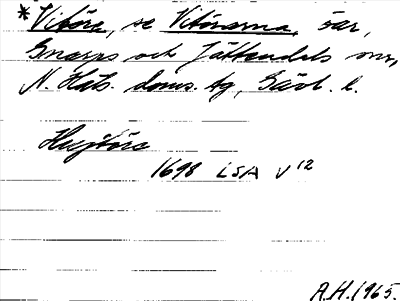 *Vitöra, se Vitörarna, öar,
Gnarps och Jättendals snr,
N. Häls. doms. tg, Gävl. l.
Huitöra
1698 LSA V 12
A.H. 1965.